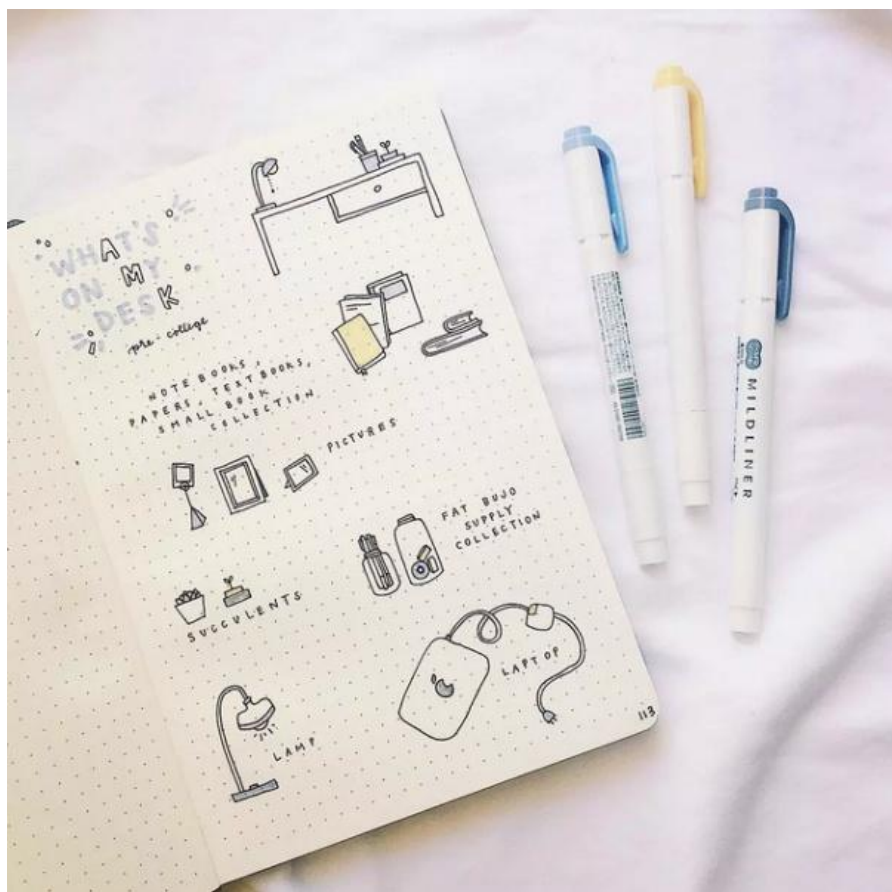 WHAT'S
ON MY
DESK
AMK
pre-college
NOTEBOOKS,
PAPERS, TEXTBOOKS,
SMALL BOOK
COLLECTION
PICTURES
FAT BUJO
SUPPLY
COLLECTION
SUCCULENTS
LAPTOP
LAMP
113
MILDLINER